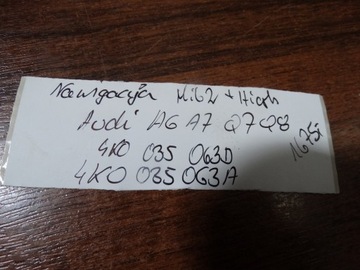 Nawigacja Mib2 + High
Audi A6 A7 Q7 Q8
4KO 035 063D
4KO 035 063A
1675i